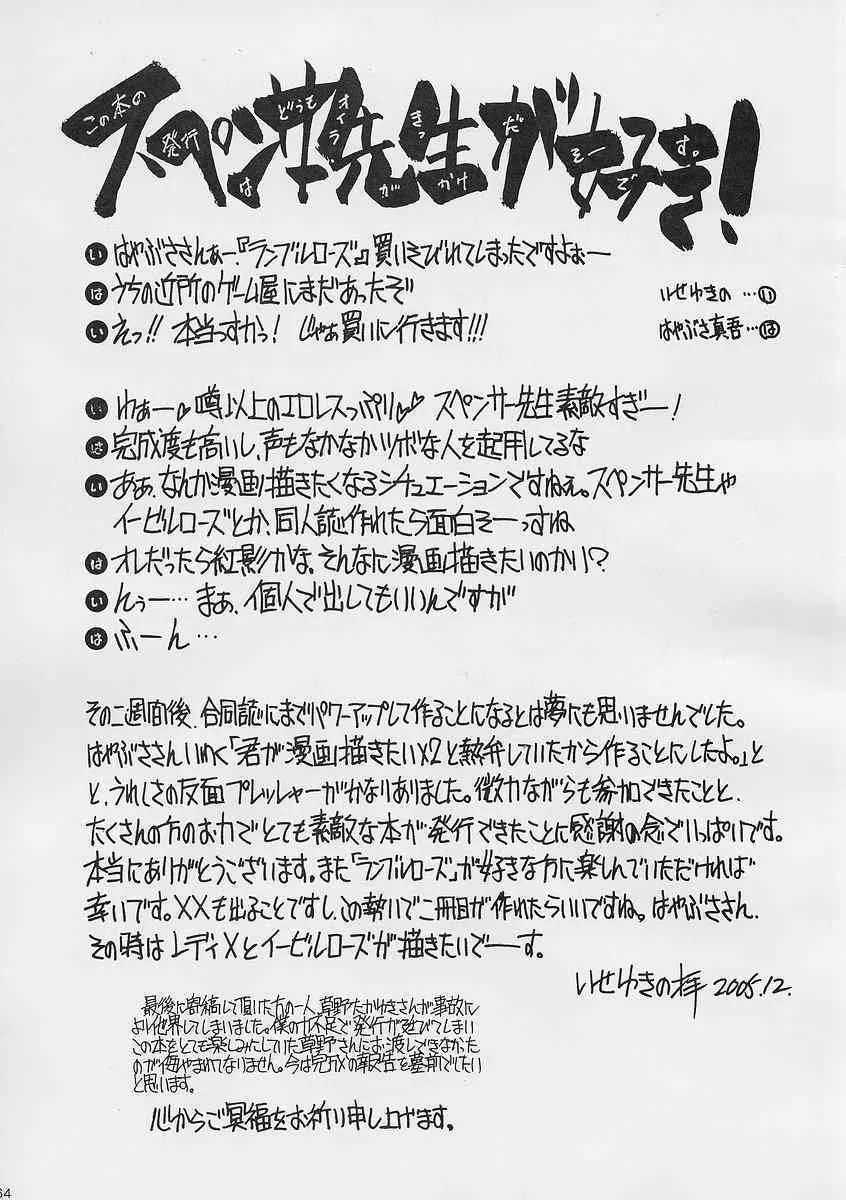 スペンサー先生が好き!
この本の
発行は
どうも
オイラが
きっかけ
だそーです。
い はやぶささんぁー、『ランブルローズ』買いそびれてしまったですよぉー
は うちの近所のゲーム屋にまだあったぞ
い えっ!! 本当っすかっ! じゃぁ買いに行きます!!!
いせゆきの …い
はやぶさ真吾…は
い わぁー♡噂以上のエロレスっぷり♡♡ スペンサー先生素敵すぎー!
は 完成度も高いし、声もなかなかツボな人を起用してるな
い あぁ、なんか漫画描きたくなるシチュエーションですねぇ。スペンサー先生や
イービルローズとか、同人誌作れたら面白そーっすね
は オレだったら紅影かな。そんなに漫画描きたいのかい?
い んぅー… まぁ、個人で出してもいいんですが
は ふーん…
その二週間後、合同誌にまでパワーアップして作ることになるとは夢にも思いませんでした。
はやぶささんいわく「君が漫画描きたいx2と熱弁していたから作ることにしたよ。」と
と、うれしさの反面プレッシャーがかなりありました。微力ながらも参加できたことと、
たくさんの方のお力でとても素敵な本が発行できたことに感謝の念でいっぱいです。
本当にありがとうございます。また「ランブルローズ」が好きな方に楽しんでいただければ
幸いです。XXも出ることですし、この勢いで二冊目が作れたらいいですね。はやぶささん、
その時はレディXとイービルローズが描きたいでーす。
いせゆきの拝 2005.12.
最後に寄稿して頂いた方の一人、草野たかゆきさんが事故に
より他界してしまいました。僕の力不足で発行が延びてしまい
この本をとても楽しみにしていた草野さんにお渡しできなかった
のが悔やまれてなりません。今は完成の報告を墓前でしたい
と思います。
心からご冥福をお祈り申し上げます。
64